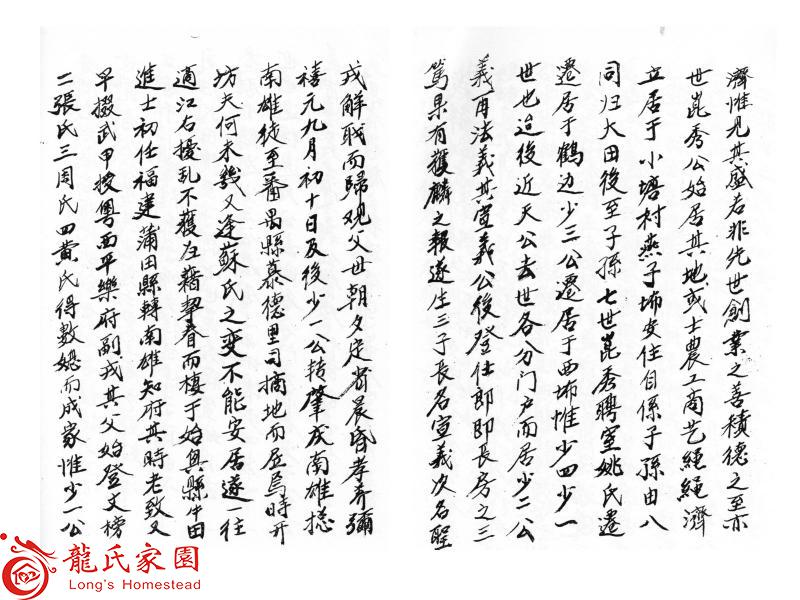 濟惟見其盛若非先世創業之善積德之至亦
世崑秀公始居其地或士農工商艺繩繩濟
立居于小塘村燕子埇安住自係子孫由八
同归大田後至子孫七世崑秀聘室姚氏遷
遷居于鶴边少三公遷居于西埇惟少四少一
世也迨後近天公去世各分门户而居少二公
義再法義其宣義公後登仕郎即長房之三
篤果有獲麟之報遂生三子長名宣義次名聖
戎解職而歸观父母朝夕定省晨昏孝养彌
禧元九月初十日及後少一公轉肇戍南雄
南雄徒至番禺縣慕德里司擇地而居焉時开
坊夫何未幾又逢蘇氏之变不能安居遂一往
適江右擾乱不獲在籍挈眷而棲于始興縣牛田
進士初任福建莆田縣轉南雄知府其時老致又
早掇武甲授粵西平樂府副戎其父始登文榜
二張氏三周氏四黄氏得数媳而成家惟少一公
龍氏家園
Long's Homestead